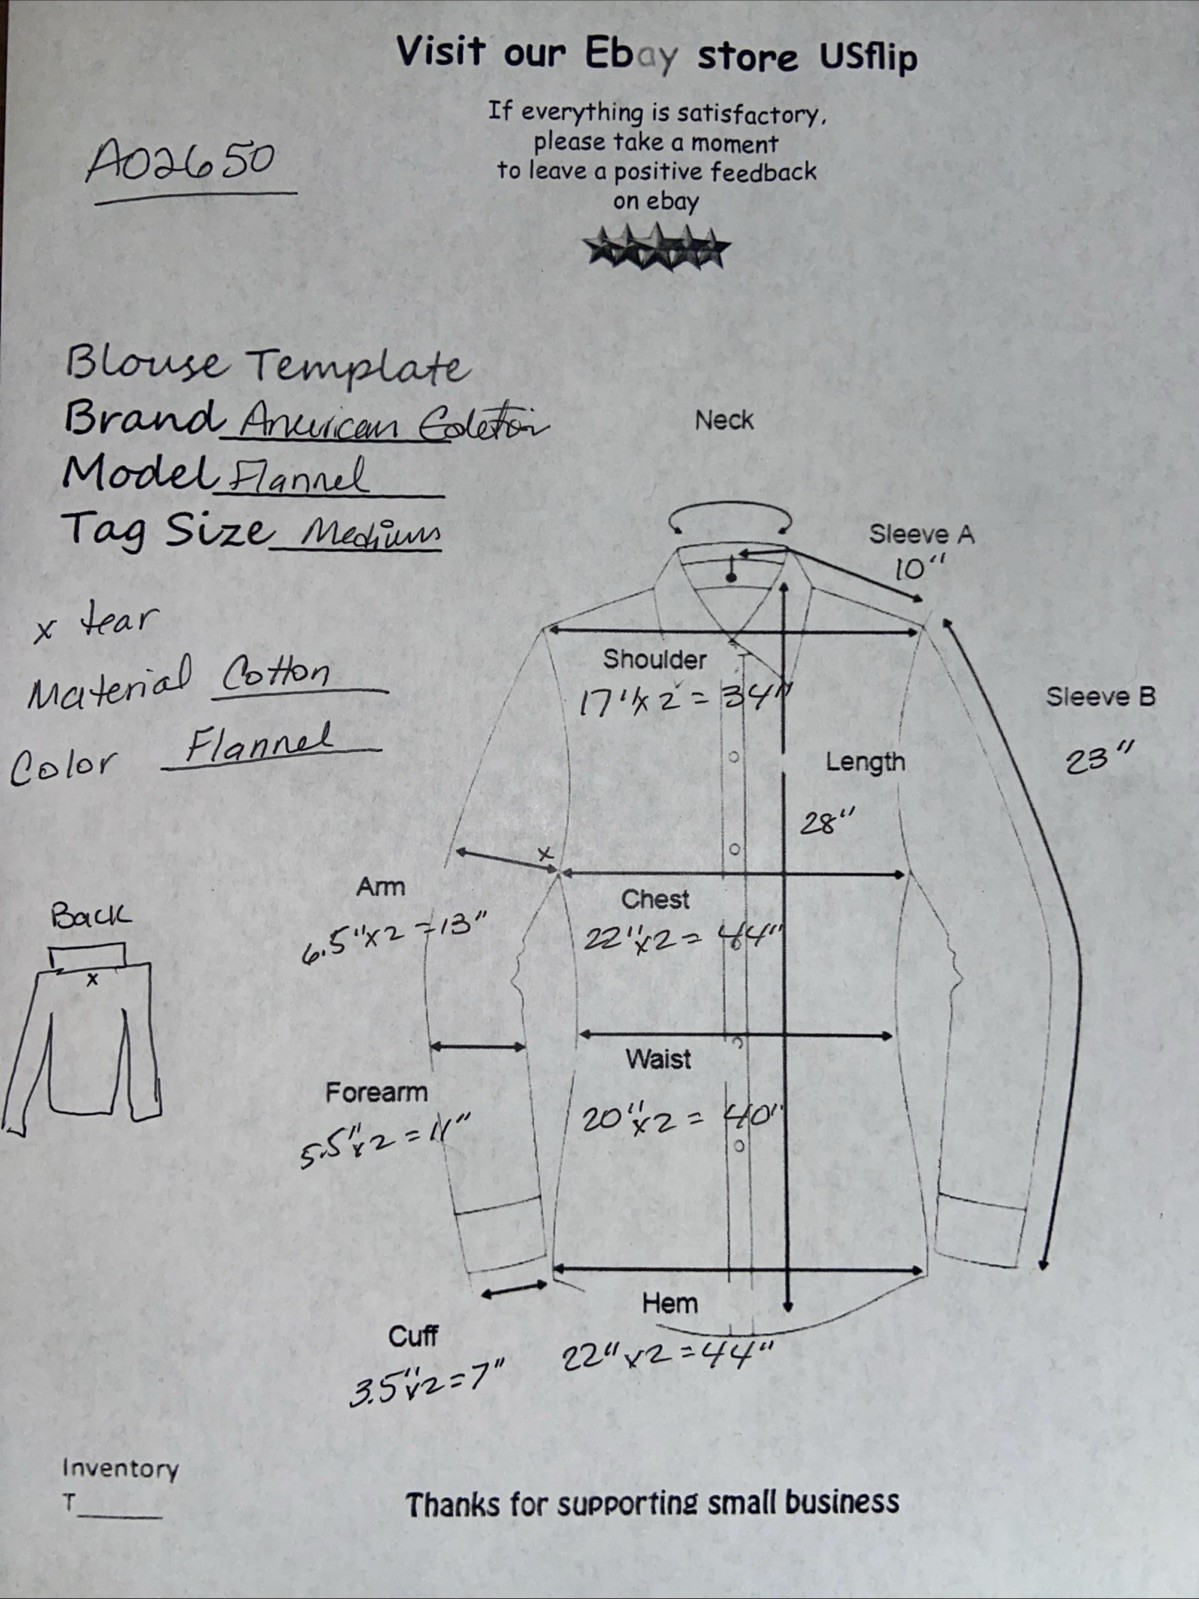 Visit our Ebay store USflip
If everything is satisfactory,
please take a moment
to leave a positive feedback
on ebay
A02650
Blouse Template
Brand American
Model Flannel
Tag Size Medium
x tear
Material Cotton
Color Flannel
Neck
Sleeve A
10"
Shoulder
17"x2 = 34"
Sleeve B
23"
Length
28"
x
Arm
6.5"x2 = 13"
Chest
22"x2 = 44"
Back
x
Waist
20"x2 = 40"
Forearm
5.5"x2 = 11"
Hem
22"x2 = 44"
Cuff
3.5"x2 = 7"
Inventory
T_______
Thanks for supporting small business